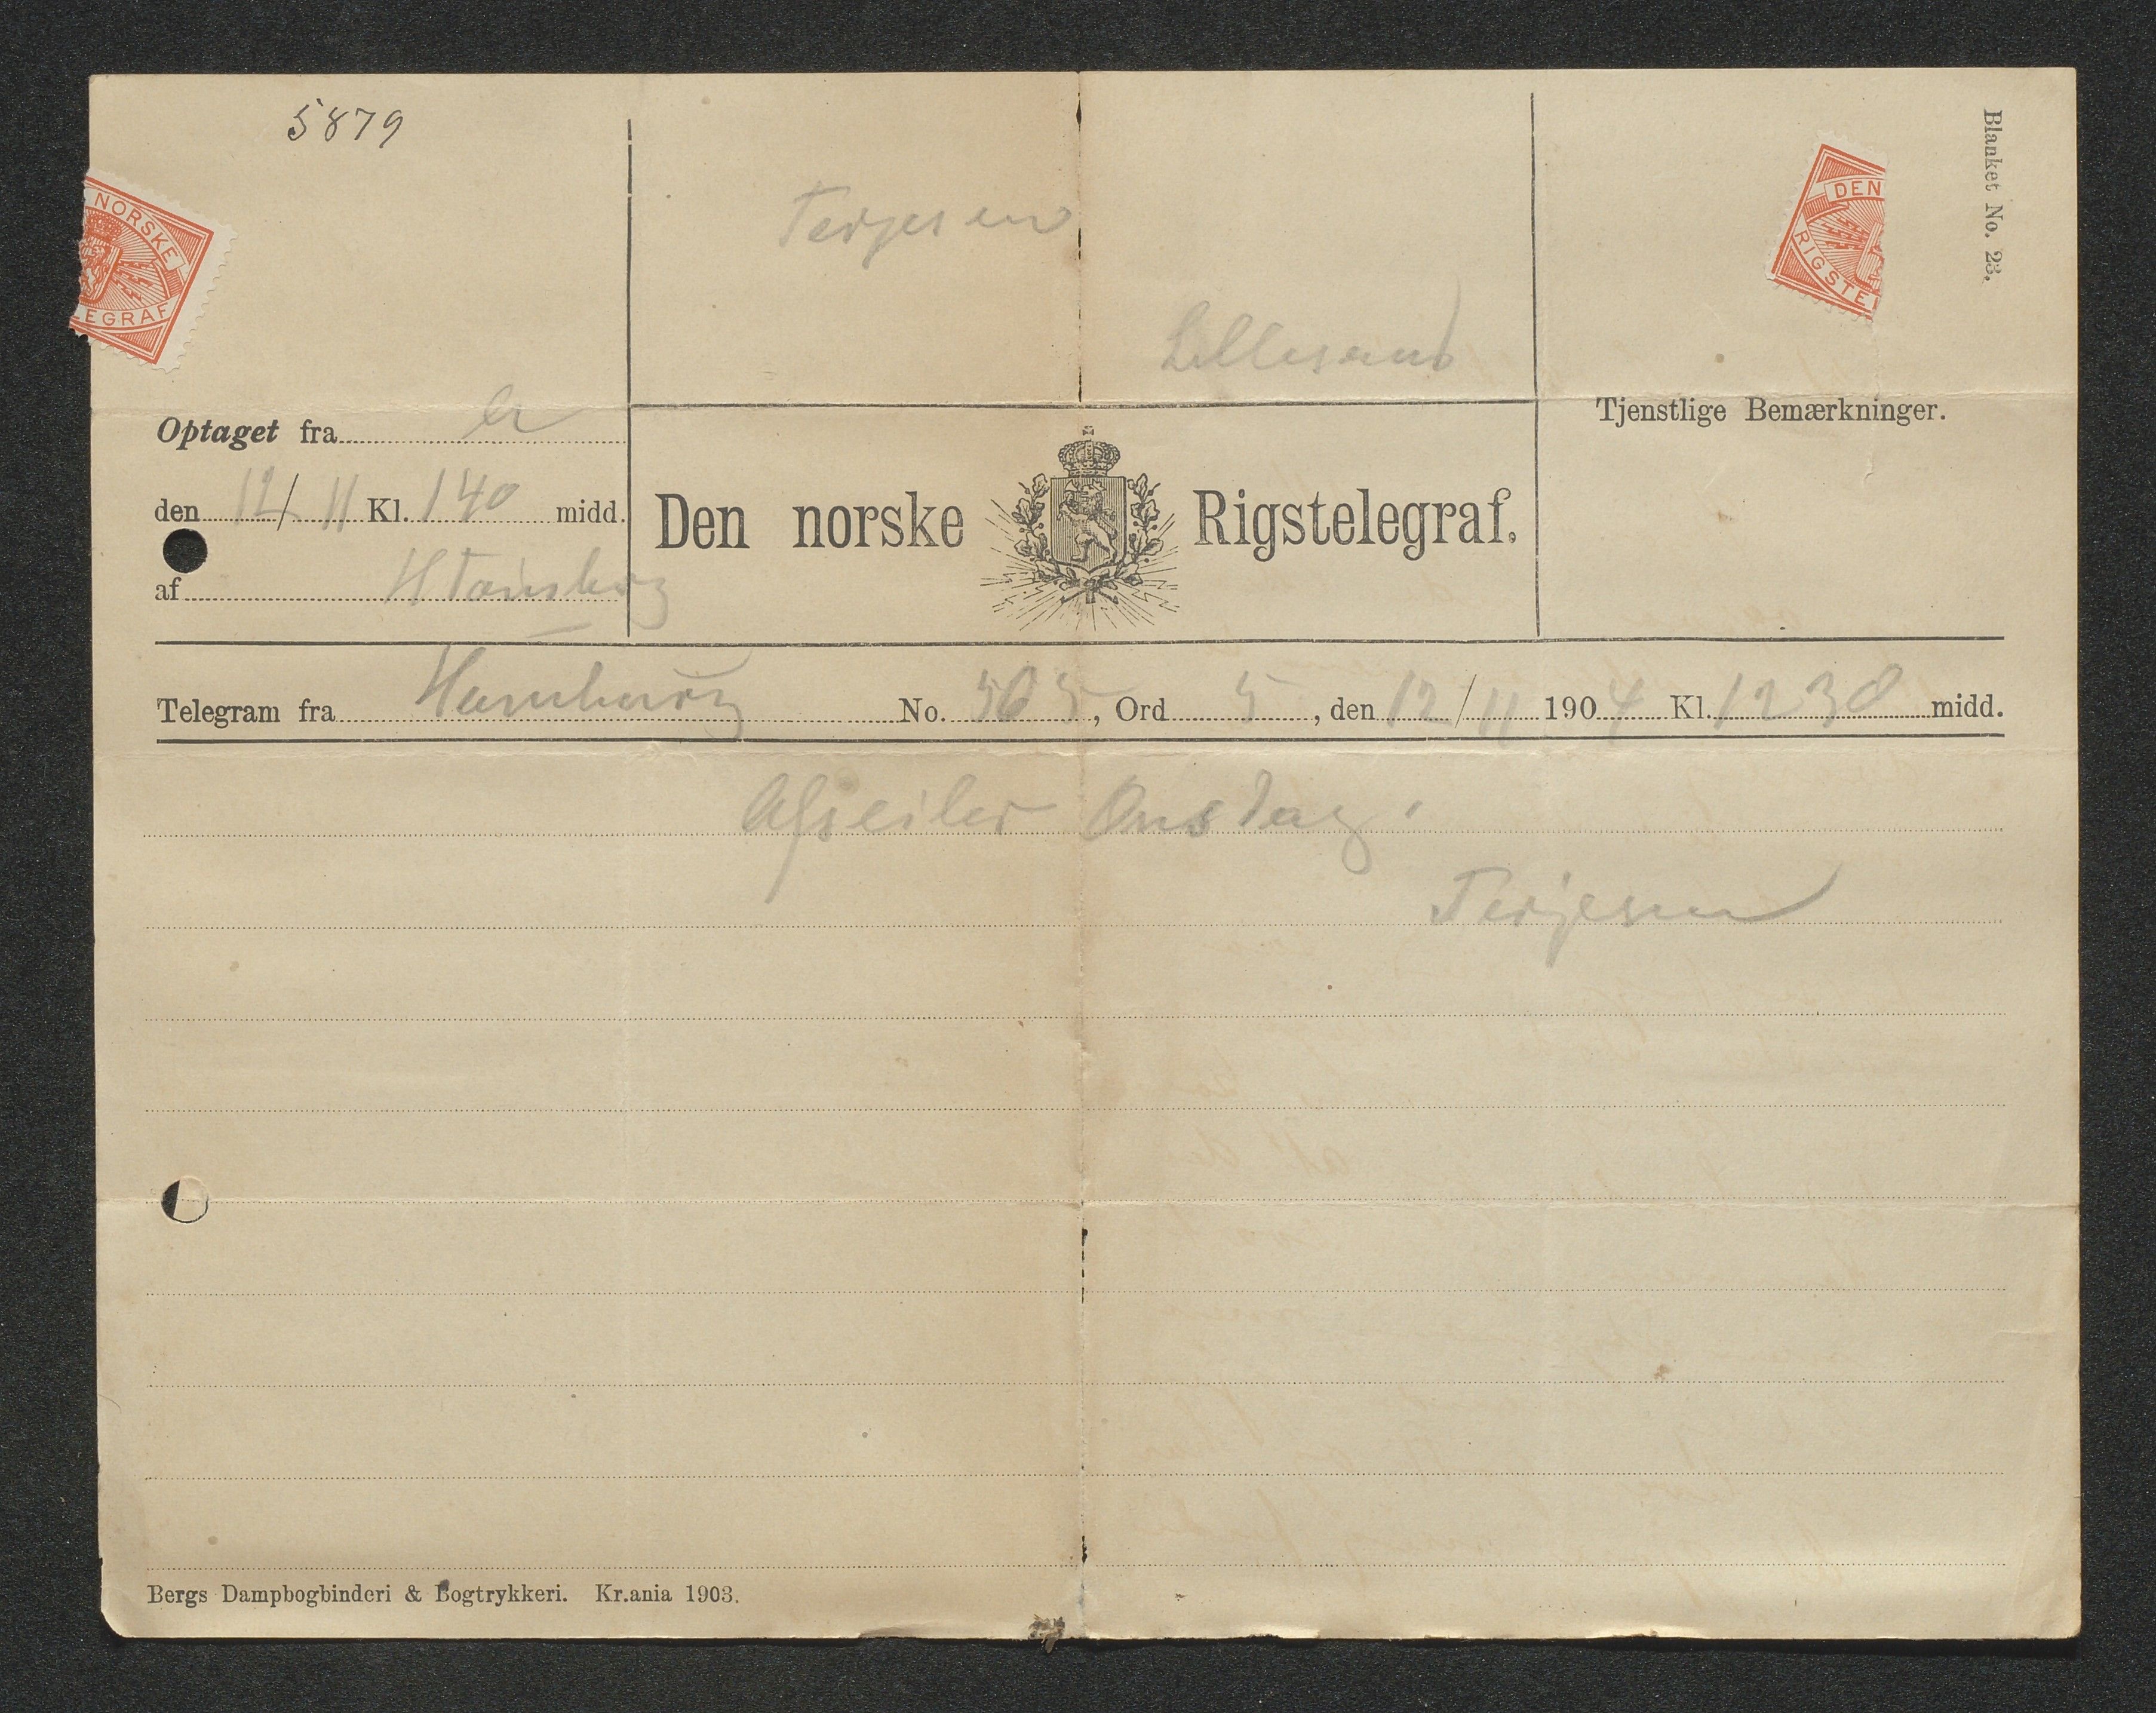 5879
Blanket No. 23.
NORSKE
EGRAF
DEN
RIGSTE
Terjesen
Lillesand
Optaget fra a
Tjenstlige Bemærkninger.
den 12/11 Kl. 140 midd.
Den norske Rigstelegraf.
af
Telegram fra Hamburg No. 505, Ord 5, den 12/11 1904 Kl. 1230 midd.
Afseiler Onsdag.
Terjesen
Bergs Dampbogbinderi & Bogtrykkeri. Kr.ania 1903.